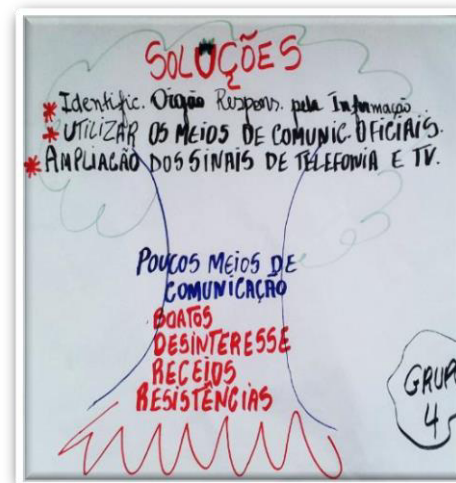 SOLUÇÕES
* Identific. Orgão Respons. pela Informação
* UTILIZAR OS MEIOS DE COMUNIC. OFICIAIS.
* AMPLIAÇÃO DOS SINAIS DE TELEFONIA E TV.
POUCOS MEIOS DE
COMUNICAÇÃO
BOATOS
DESINTERESSE
RECEIOS
RESISTÊNCIAS
GRUPO
4